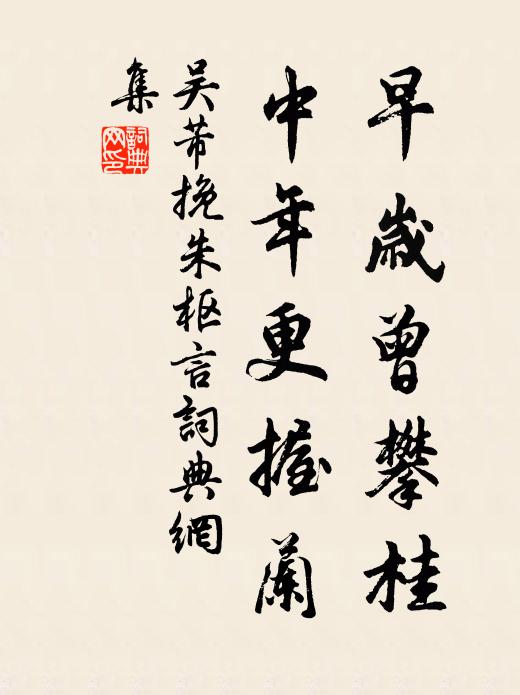 早歲曾攀桂
中年更握蘭
吴芾挽朱樞言詞典網
集
詞典
网印